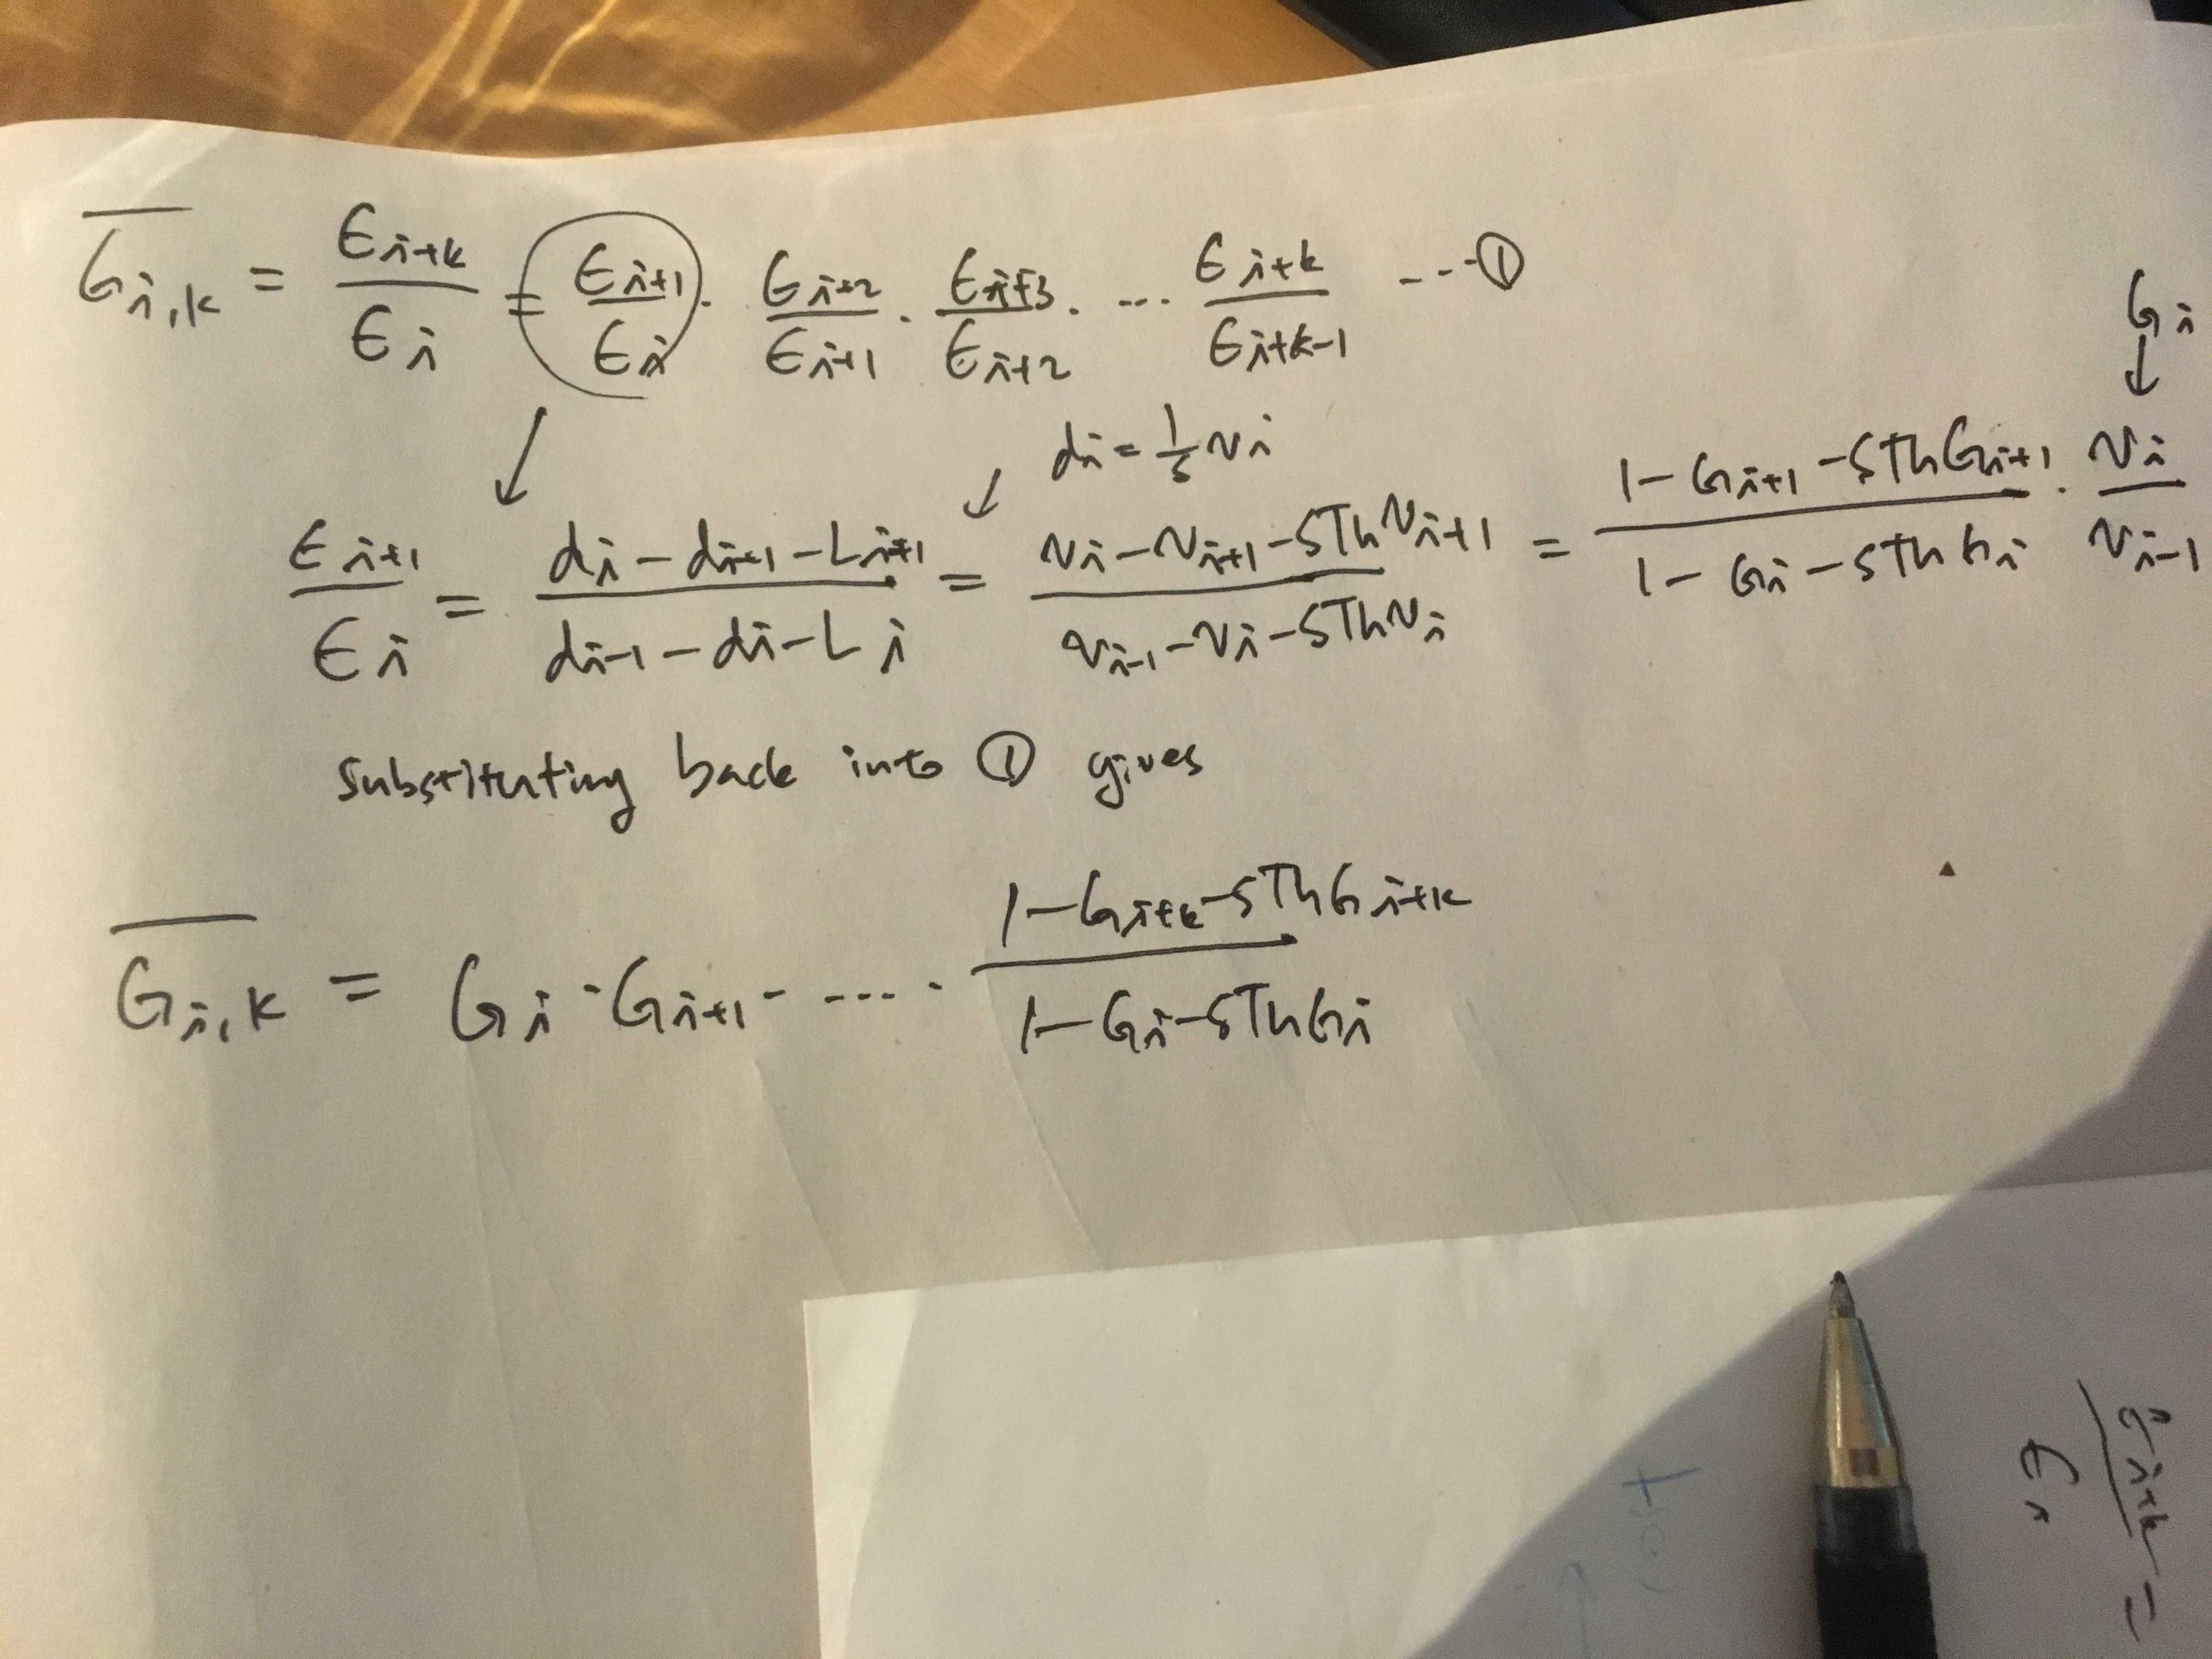 \overline{G_{i,k}} = \frac{ϵ_{i+k}}{ϵ_i} = \frac{ϵ_{i+1}}{ϵ_i} · \frac{G_{i+2}}{ϵ_{i+1}} · \frac{ϵ_{i+3}}{ϵ_{i+2}} · ... \frac{ϵ_{i+k}}{ϵ_{i+k-1}} ---①
G_i
↓
↙ d_i = \frac{1}{s} v_i
\frac{ϵ_{i+1}}{ϵ_i} = \frac{d_i - d_{i+1} - L_{i+1}}{d_{i-1} - d_i - L_i} = \frac{v_i - v_{i+1} - sTh v_{i+1}}{v_{i-1} - v_i - sTh v_i} = \frac{1 - G_{i+1} - sTh G_{i+1}}{1 - G_i - sTh G_i} · \frac{v_i}{v_{i-1}}
substituting back into ① gives
\overline{G_{i,k}} = G_i · G_{i+1} · .... · \frac{1 - G_{i+k} - sTh G_{i+k}}{1 - G_i - sTh G_i}